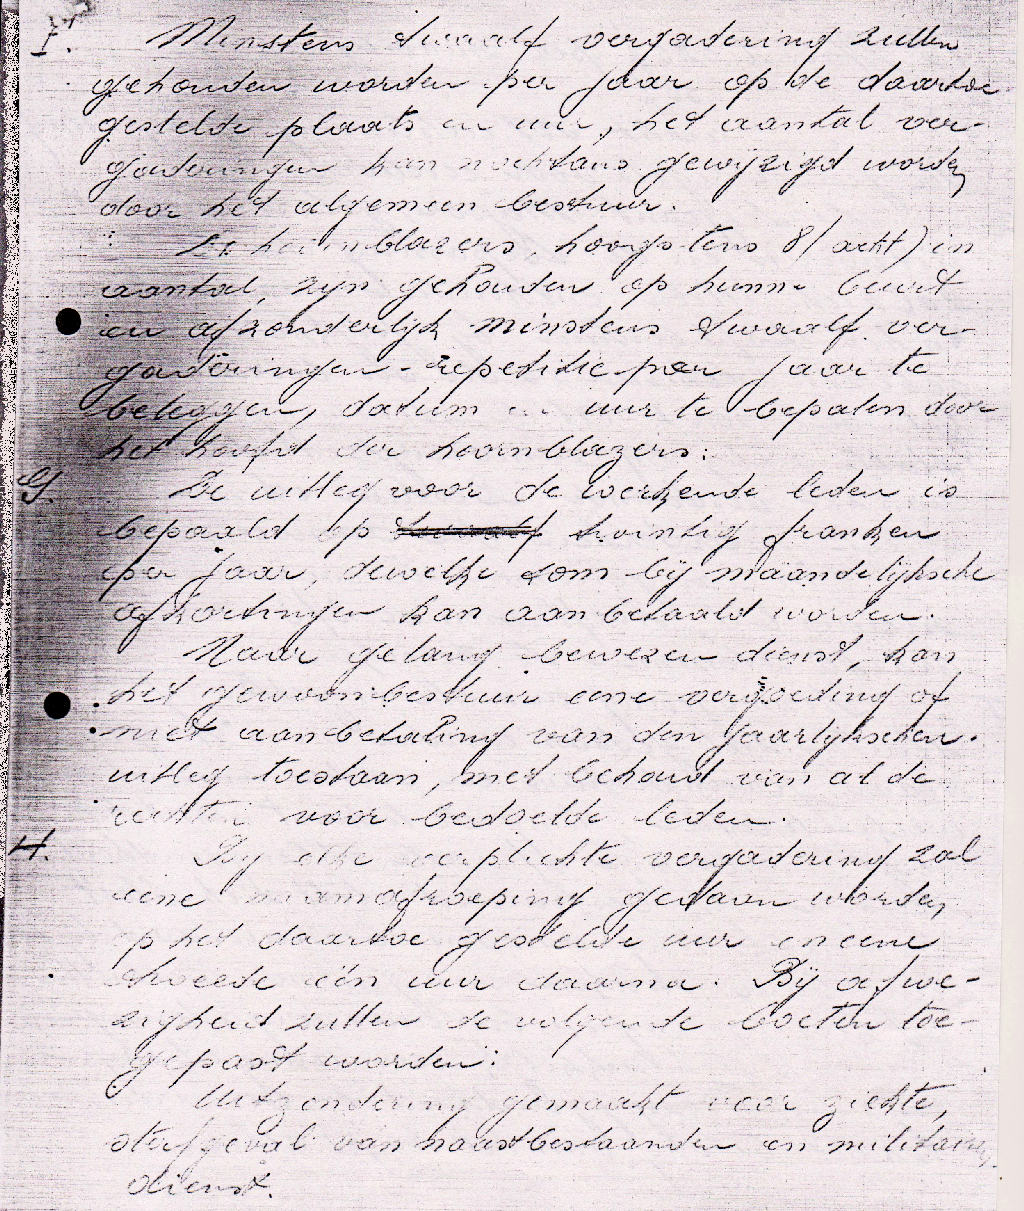 F. Minstens twaalf vergadering zullen
gehouden worden per jaar op de daartoe
gestelde plaats en uur, het aantal ver-
gaderingen kan nochtans gewijzigd worden
door het algemeen bestuur.
De hoornblazers, hoogstens 8 (acht) in
aantal, zijn gehouden op hunne beurt
en afzonderlijk minstens twaalf ver-
gaderingen - repetitie per jaar te
beleggen, datum en uur te bepalen door
het hoofd der hoornblazers.
G. De uitleg voor de werkende leden is
bepaald op twaalf twintig franken
per jaar, dewelke som bij maandelijksche
afkortingen kan aanbetaald worden.
Naar gelang bewezen dienst, kan
het gewoonbestuur eene vergoeding of
niet aanbetaling van den jaarlijkschen
uitleg toestaan, met behoud van al de
rechten voor bedoelde leden.
H. Bij elke verplichte vergadering zal
eene naamafroeping gedaan worden,
op het daartoe gestelde uur en eene
tweede één uur daarna. Bij afwe-
zigheid zullen de volgende boeten toe-
gepast worden:
Uitzondering gemaakt voor ziekte,
sterfgeval van naastbestaanden en militairen
dienst.